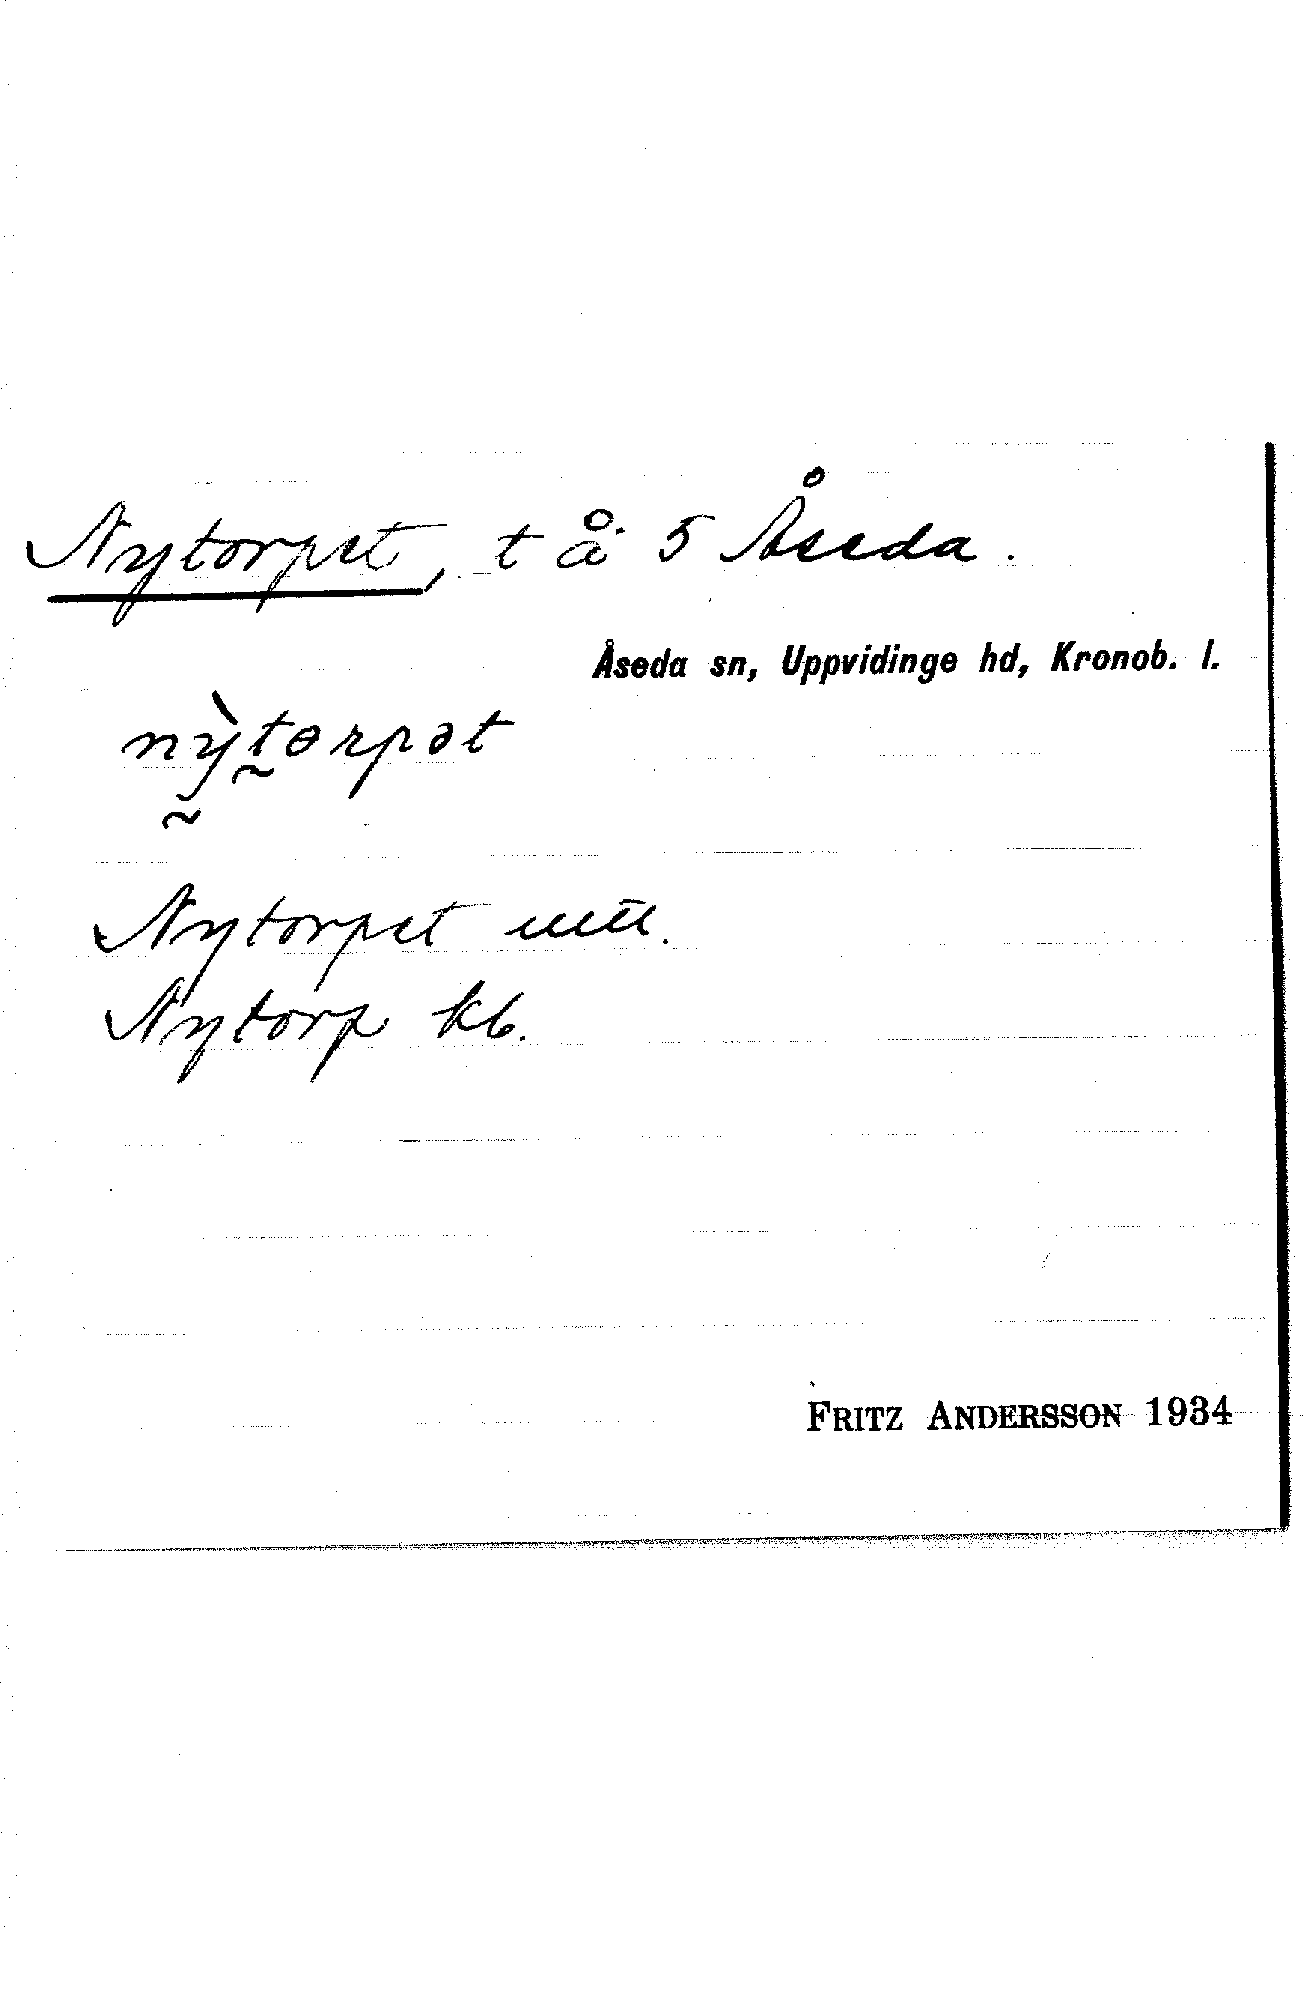 Nytorpet, t å 5 Åseda.
Åseda sn, Uppvidinge hd, Kronob. l.
nỳtɵrpət
Nytorpet
Nytorp kb.
FRITZ ANDERSSON 1934